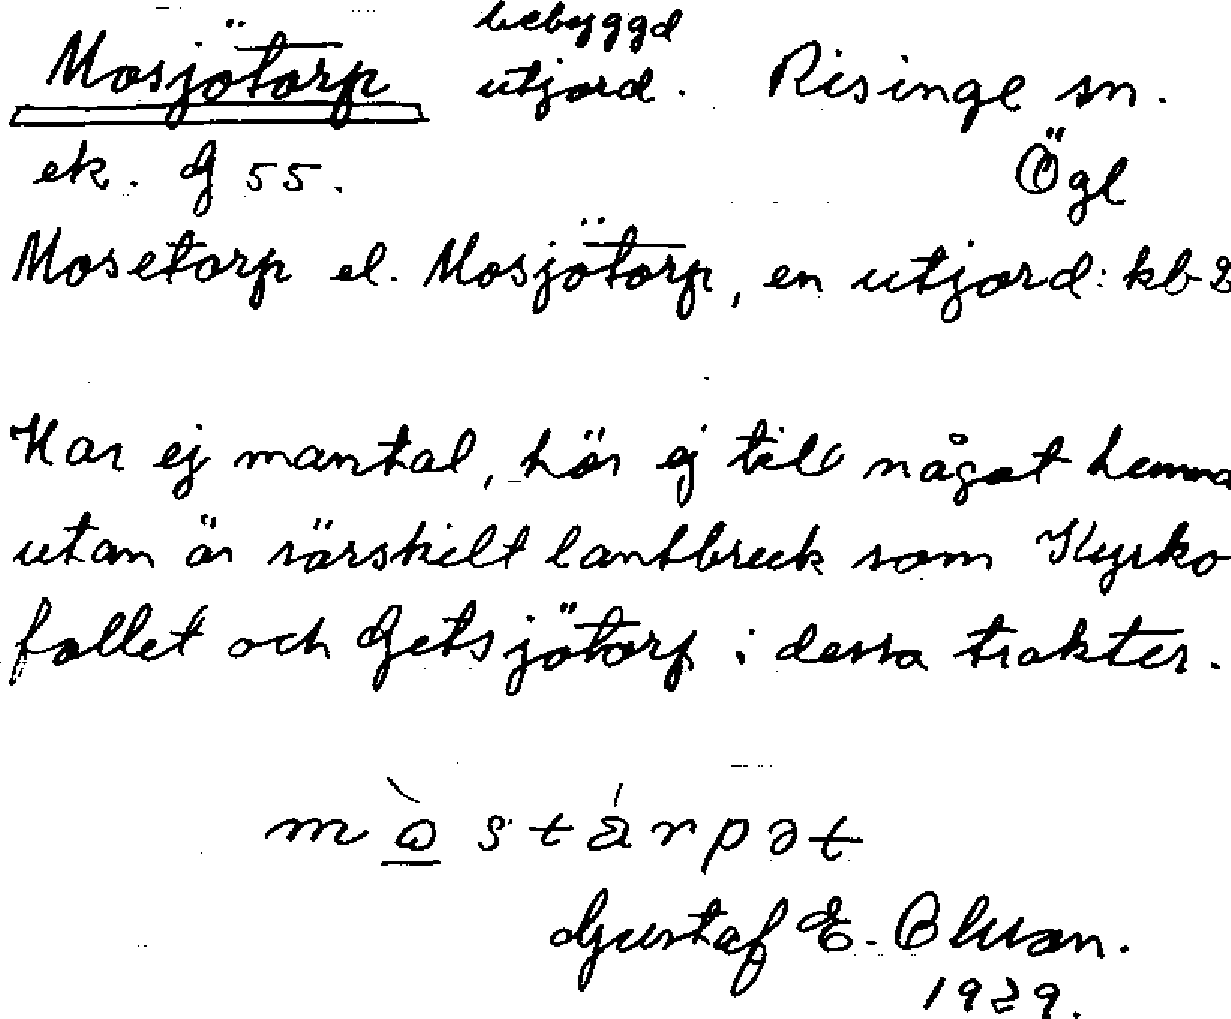 Mosjötorp bebyggd utjord. Risinge sn.
ek. G 55. Ögl
Mosetorp el. Mosjötorp, en utjord: kb
Har ej mantal, hör ej till något hemma
utan är särskilt lantbruk som Kyrko
fallet och Getsjötorp i dessa trakter.
m ò s t ǻ r p ə t
Gustaf E. Olsson.
1929.